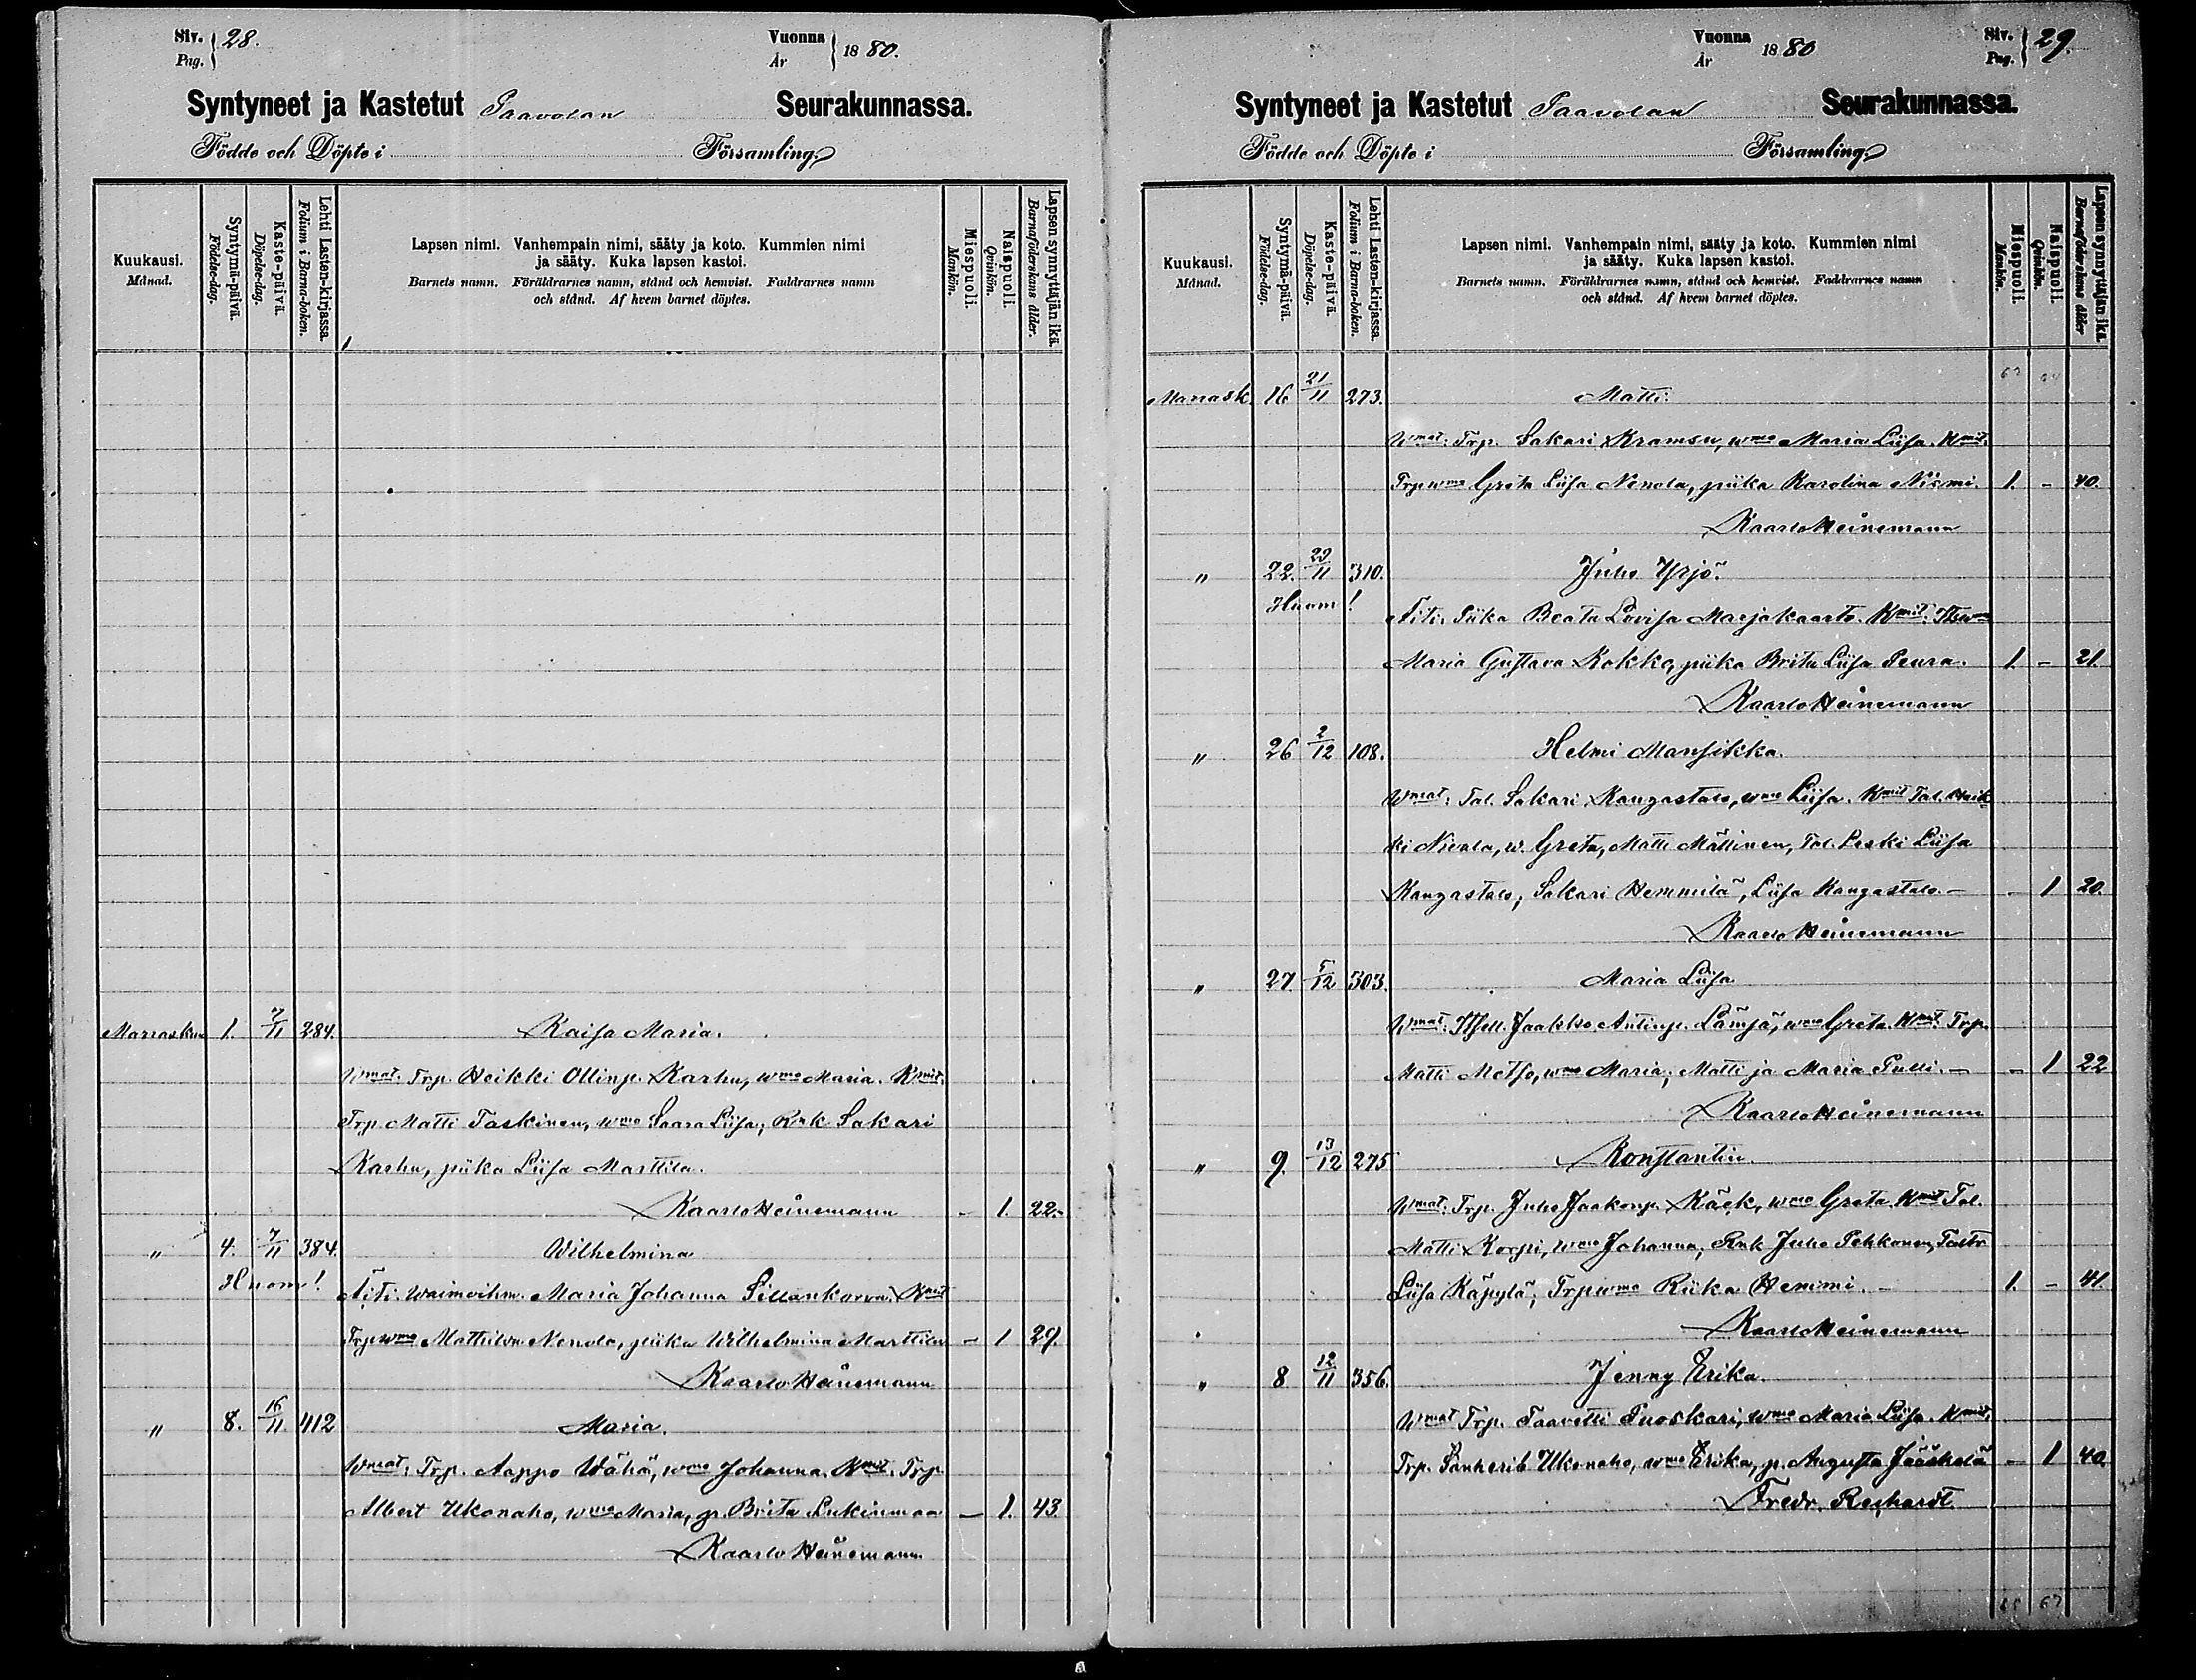 Siv. 28.
Pag.
Vuonna 1880.
År
Syntyneet ja Kastetut Paavolan Seurakunnassa.
Födde och Döpte i Församling.
Kuukausi.
Månad.
Syntymä-päivä.
Födelse-dag.
Kaste-päivä.
Döpelse-dag.
Lehti Lasten-kirjassa.
Folium i Barna-boken.
Lapsen nimi. Vanhempain nimi, sääty ja koto. Kummien nimi
ja sääty. Kuka lapsen kastoi.
Barnets namn. Föräldrarnes namn, stånd och hemvist. Faddrarnes namn
och stånd. Af hvem barnet döptes.
Miespuoli.
Mankön.
Naispuoli.
Qvinkön.
Lapsen synnyttäjän ikä.
Barnaföderskans ålder.
Marraskuu 1. 7/11 284. Kaisa Maria.
Wmat: Trp. Heikki Ollinp. Karhu, wmo Maria. Kmit:
Trp. Matti Taskinen, wmo Saara Liisa; Rnk Sakari
Karhu, piika Liisa Marttila.
Kaarlo Heinemann - 1. 22.
" 4. 7/11 384. Wilhelmina
Huom! Äiti: Waimoihm. Maria Johanna Sillankorva. Kmit
Trpwmo Mathilda Nenola, piika Wilhelmina Marttila - 1 29.
Kaarlo Heinemann
" 8. 16/11 412 Maria.
Wmat: Trp. Aappo Wähä, wmo Johanna. Kmit: Trp.
Albert Ukonaho, wmo Maria, p. Brita Lukinmaa - 1. 43.
Kaarlo Heinemann
Vuonna 1880
År
Siv. 29.
Pag.
Syntyneet ja Kastetut Paavolan Seurakunnassa.
Födde och Döpte i Församling.
Kuukausi.
Månad.
Syntymä-päivä.
Födelse-dag.
Kaste-päivä.
Döpelse-dag.
Lehti Lasten-kirjassa.
Folium i Barna-boken.
Lapsen nimi. Vanhempain nimi, sääty ja koto. Kummien nimi
ja sääty. Kuka lapsen kastoi.
Barnets namn. Föräldrarnes namn, stånd och hemvist. Faddrarnes namn
och stånd. Af hvem barnet döptes.
Miespuoli.
Mankön.
Naispuoli.
Qvinkön.
Lapsen synnyttäjän ikä.
Barnaföderskans ålder
Marrask. 16 21/11 273. Matti.
Wmat: Trp. Sakari Kramsu, wmo Maria Liisa. Kmit:
Trpwmo Greta Liisa Nenola, piika Karolina Niemi. 1. - 40.
Kaarlo Heinemann
" 22. 29/11 310. Juho Yrjö.
Huom! Äiti: Piika Beata Lovisa Marjakaarto. Kmit:
Maria Gustava Kokko, piika Brita Liisa Peura. 1. - 21.
Kaarlo Heinemann
" 26 2/12 108. Helmi Mansikka.
Wmat: Tal. Sakari Kangastalo, wmo Liisa. Kmit Tal. Heik-
ki Nivala, w. Greta, Matti Mattinen, Tal. Leski Liisa
Kangastalo, Sakari Hemmilä, Liisa Kangastalo. - - 1 20.
Kaarlo Heinemann
" 27. 5/12 303. Maria Liisa
Wmat: Itsell. Jaakko Antinp. Lämsä, wmo Greta. Kmit. Trp.
Matti Metso, wmo Maria; Matti ja Maria Pulli. - - 1 22
Kaarlo Heinemann
" 9. 13/12 275 Konstantin
Wmat: Trp. Juho Jaakonp. Käck, wmo Greta. Kmit Tal.
Matti Korpi, wmo Johanna; Rnk Juho Pehkonen,
Liisa Käpylä; Trpwmo Riika Hemmi. - 1. - 41.
Kaarlo Heinemann
" 8 12/11 356. Jenny Erika.
Wmat Trp. Taavetti Puoskari, wmo Maria Liisa. Kmit.
Trp. Sanherib Ukonaho, wmo Erika, p. Augusta Jääskelä - 1 40.
Fredr. Rechardt.
67